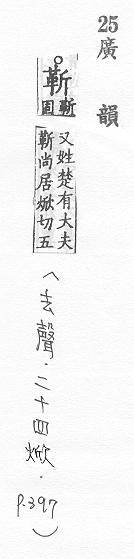 25廣韻
靳
靳
固
又姓楚有大夫
靳尚居焮切五
(去聲.二十四焮.P.397)